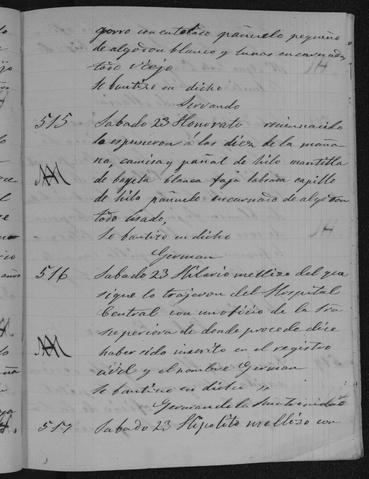 gorro con entolado pañuelo pequeño
de algodon blanco y lunas encarnadas
todo viejo
Se bautizo en dicho
Servando
515 Sabado 23 Honorato recien nacido
lo espusieron á las diez de la maña
na, camisa y pañal de hilo mantilla
de bayeta blanca faja labrada capillo
de hilo pañuelo encarnado de algodon
todo usado,
Se bautizo en dicho
German
516 Sabado 23 Hilario mellizo del que
sigue lo trajeron del Hospital
Central con un oficio de la
Superiora de donde procede dice
haber sido inscrito en el registro
civil y el nombre German
Se bautizo en dicho
German de la Santisima
517 Sabado 23 Hipolito mellizo con